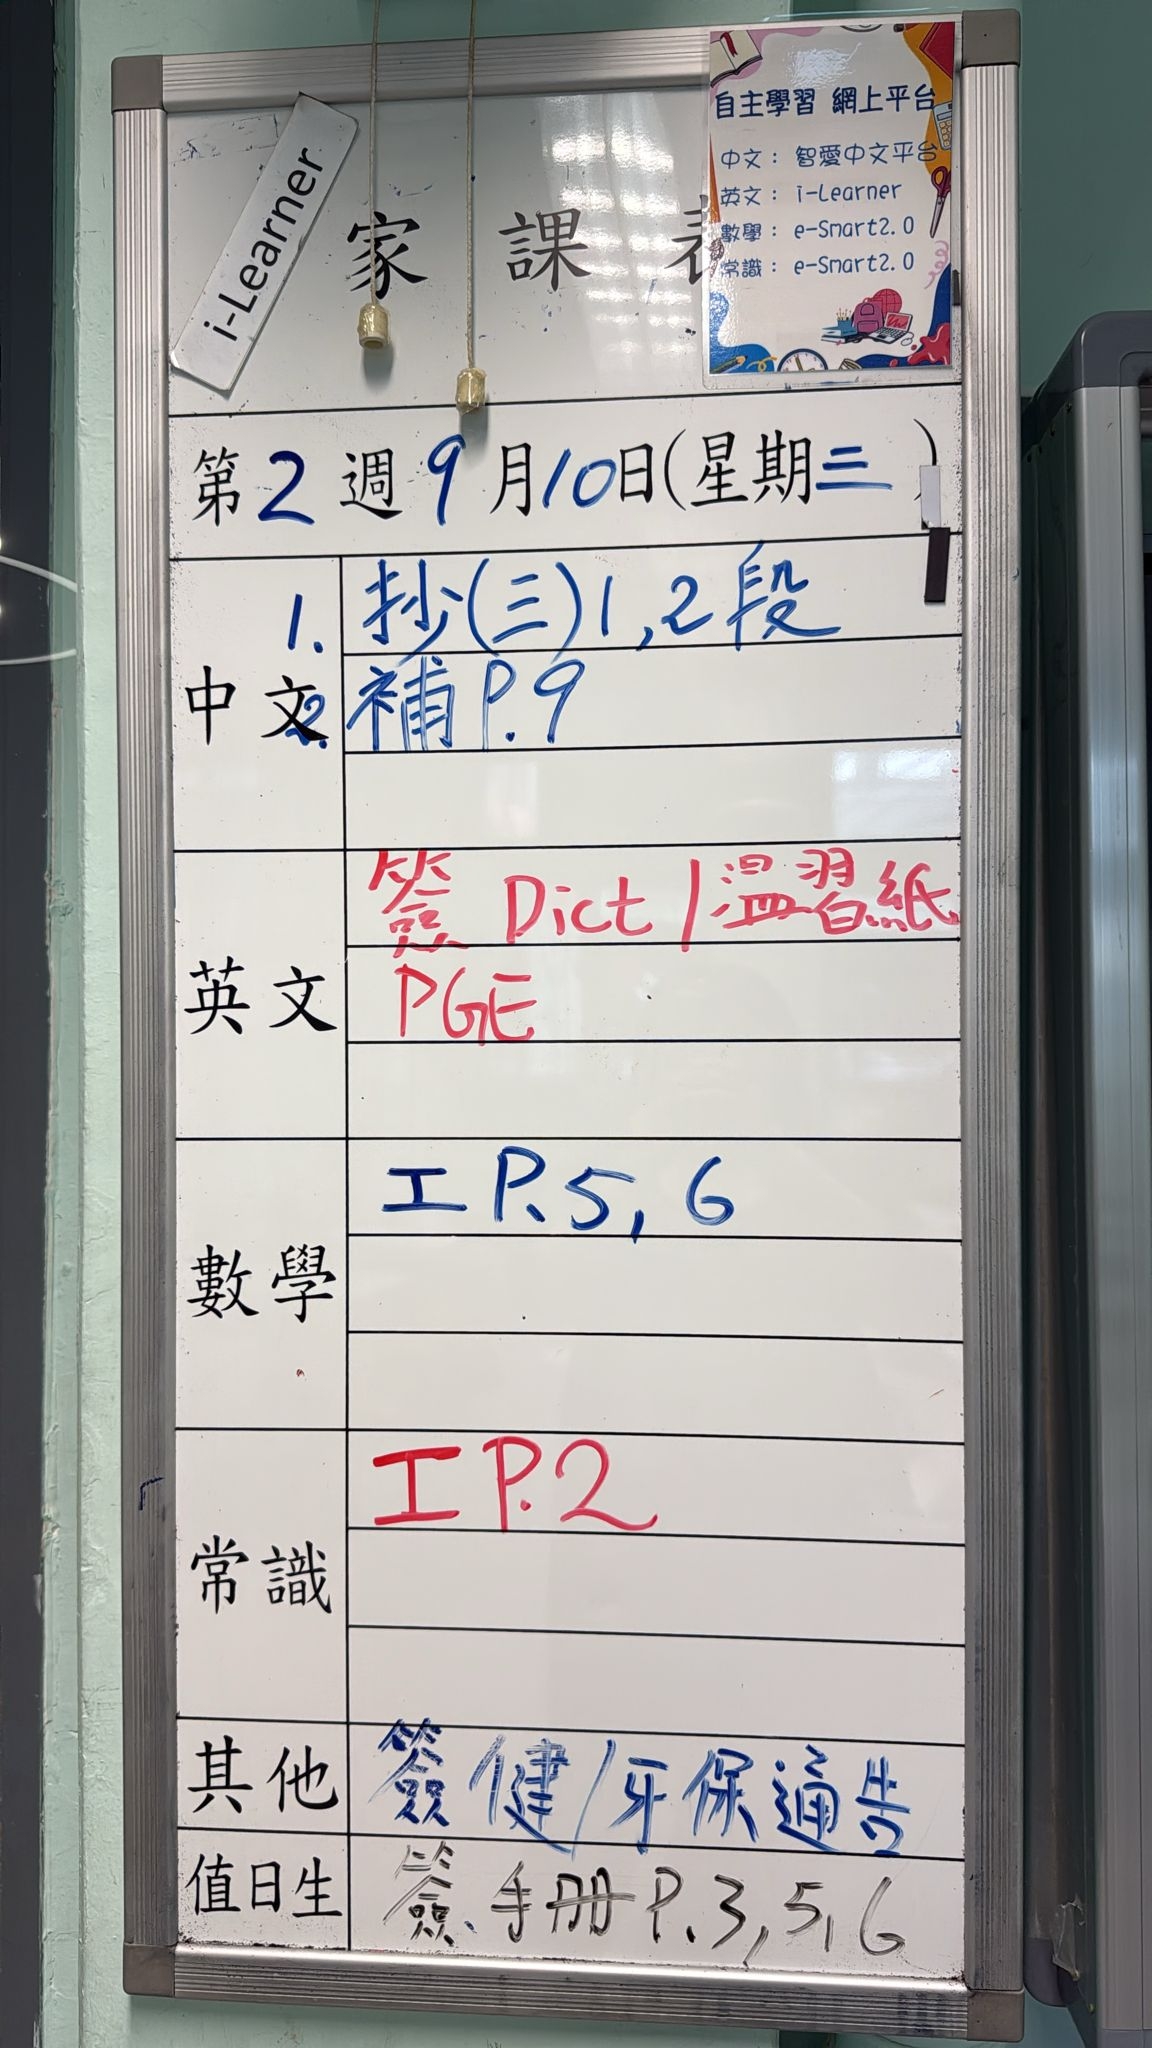 自主學習 網上平台
中文： 智愛中文平台
英文： i-Learner
數學： e-Smart2.0
常識： e-Smart2.0
i-Learner
家課表
第2週9月10日(星期三)
中文
1. 抄(三)1,2段
2. 補P.9
英文
簽 Dict/溫習紙
PGE
數學
工P.5,6
常識
工P.2
其他
簽健/牙保通告
值日生
簽手冊P.3,5,6